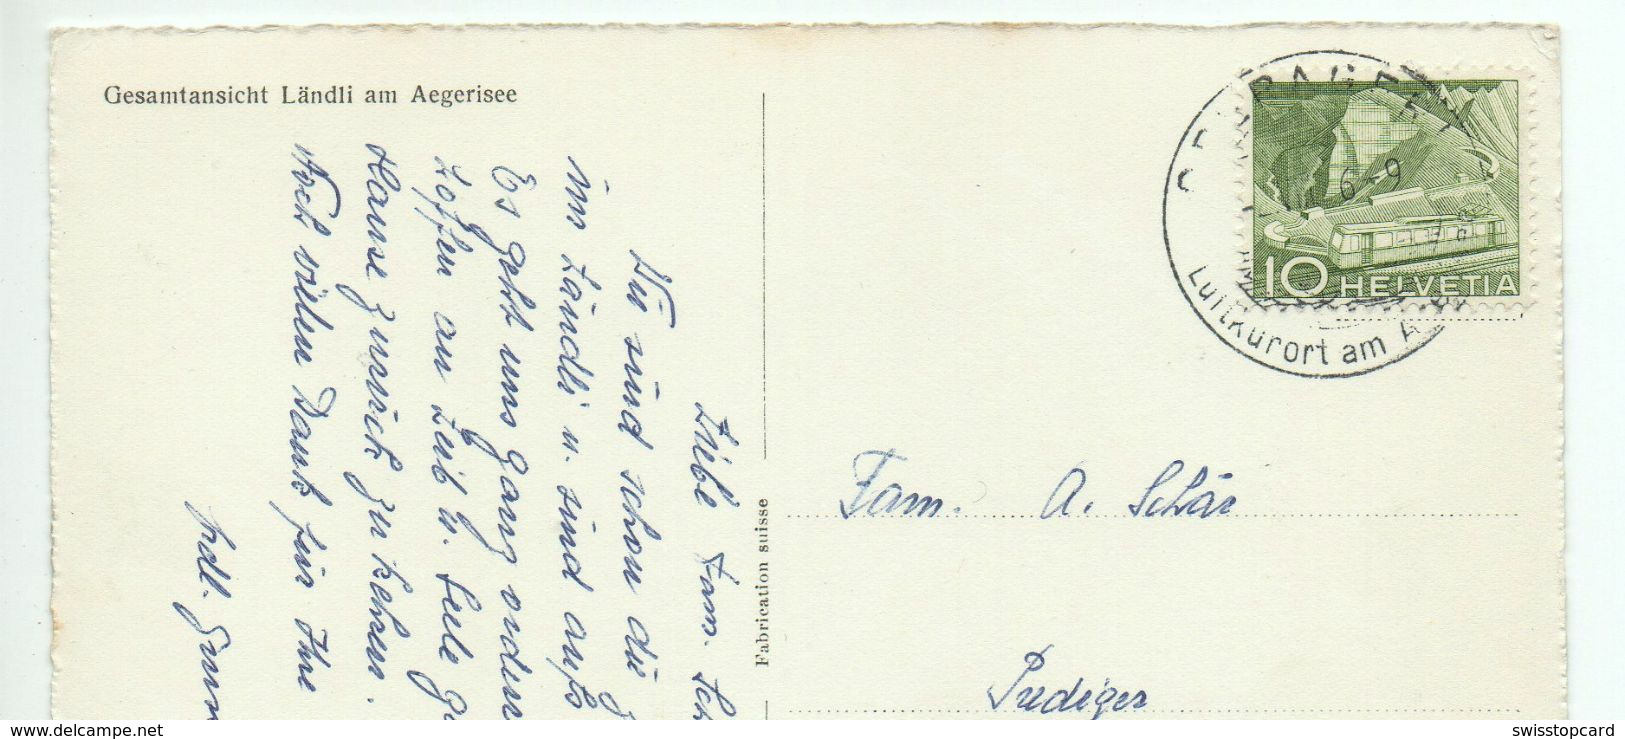 Gesamtansicht Ländli am Aegerisee
Liebe Fam. Sch
Wir sind schon die
im Ländli u. sind aufs
Es geht uns ganz orden
hoffen an Leib u. Seele
Hause zurück zu kehren.
Noch vielen Dank für Ihre
herzl.
Fabrication suisse
6-9
Luftkurort am
10 HELVETIA
Fam. A. Schär
Prediger
swisstopcard